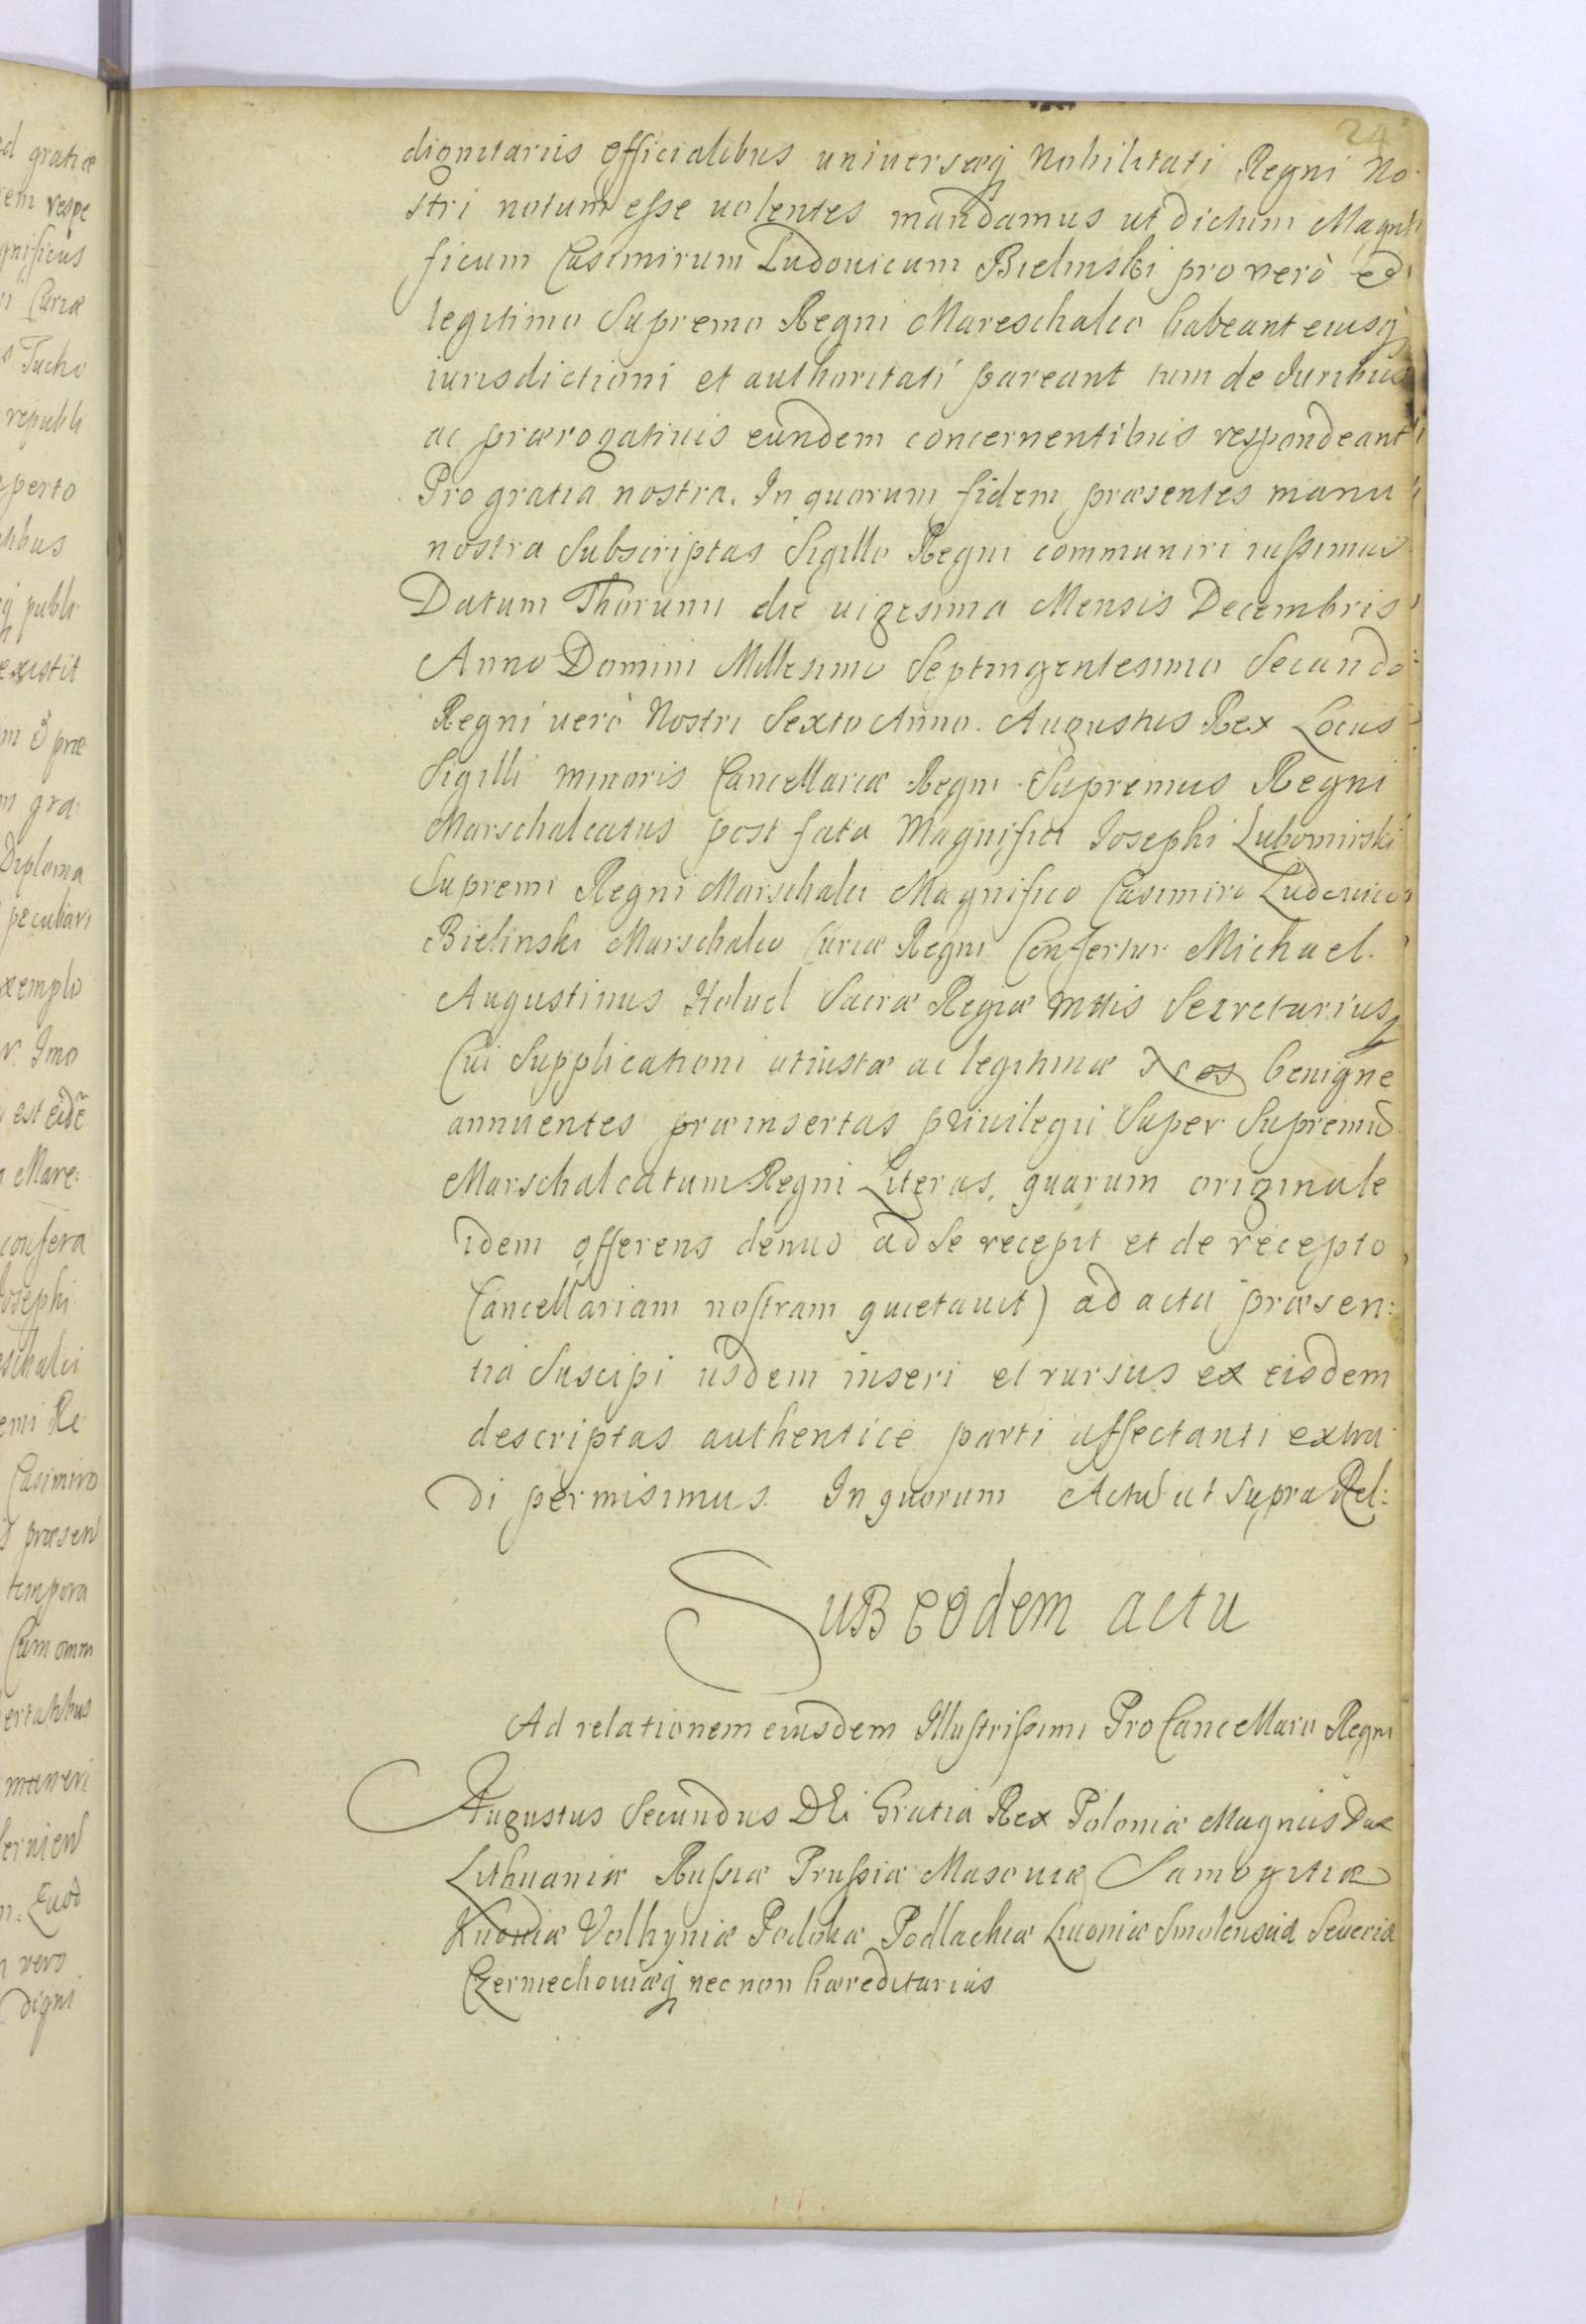 24
dignitariis officialibus universæq Nobilitati Regni No
stri notum esse uolentes mandamus ut dictum Magni
ficum Casimirum Ludouicum Bielinski pro verò et
legitimo Supremo Regni Mareschalco habeant eiusq
iurisdictioni et authoritati pareant tum de Juribus
ac prærogatiuis eundem concernentibus respondeant
Pro gratia nostra. In quorum fidem præsentes manu
nostra Subscriptas Sigillo Regni communiri iussimus
Datum Thorunii die uigesima Mensis Decembris
Anno Domini Millesimo Septingentesimo Secundo
Regni uerò Nostri Sexto Anno. Augustus Rex Locus
Sigilli minoris Cancellariæ Regni Supremus Regni
Marschalcatus post fata Magnifici Josephi Lubomirski
Supremi Regni Marschalci Magnifico Casimiro Ludouico
Bielinski Marschalco Curiæ Regni Confertur Michael
Augustinus Sacræ Regiæ Mttis Secretarius
Cui Supplicationi uti iustæ ac legitimæ benigne
annuentes præinsertas priuilegii Super Supremũ
Marschalcatum Regni Literas, quarum originale
idem offerens denuo ad Se recepit et de recepto
Cancellariam nostram quietauit) ad acta præsen:
tia Suscipi iisdem inseri et rursus ex eisdem
descriptas authenticè parti affectanti extra
di permisimus. In quorum Actũ ut supra Rel:
SUB EOdem actu
Ad relationem eiusdem Illustrissimi ProCancellarii Regni
Augustus Secundus DEi Gratia Rex Poloniæ Magnus Dux
Lithuaniæ Russiæ Prussiæ Masouiæ Samogitiæ
Kiiouiæ Volhyniæ Podoliæ Podlachiæ Liuoniæ Smolensciæ Seueriæ
Czerniechouiæq nec non hæreditarius